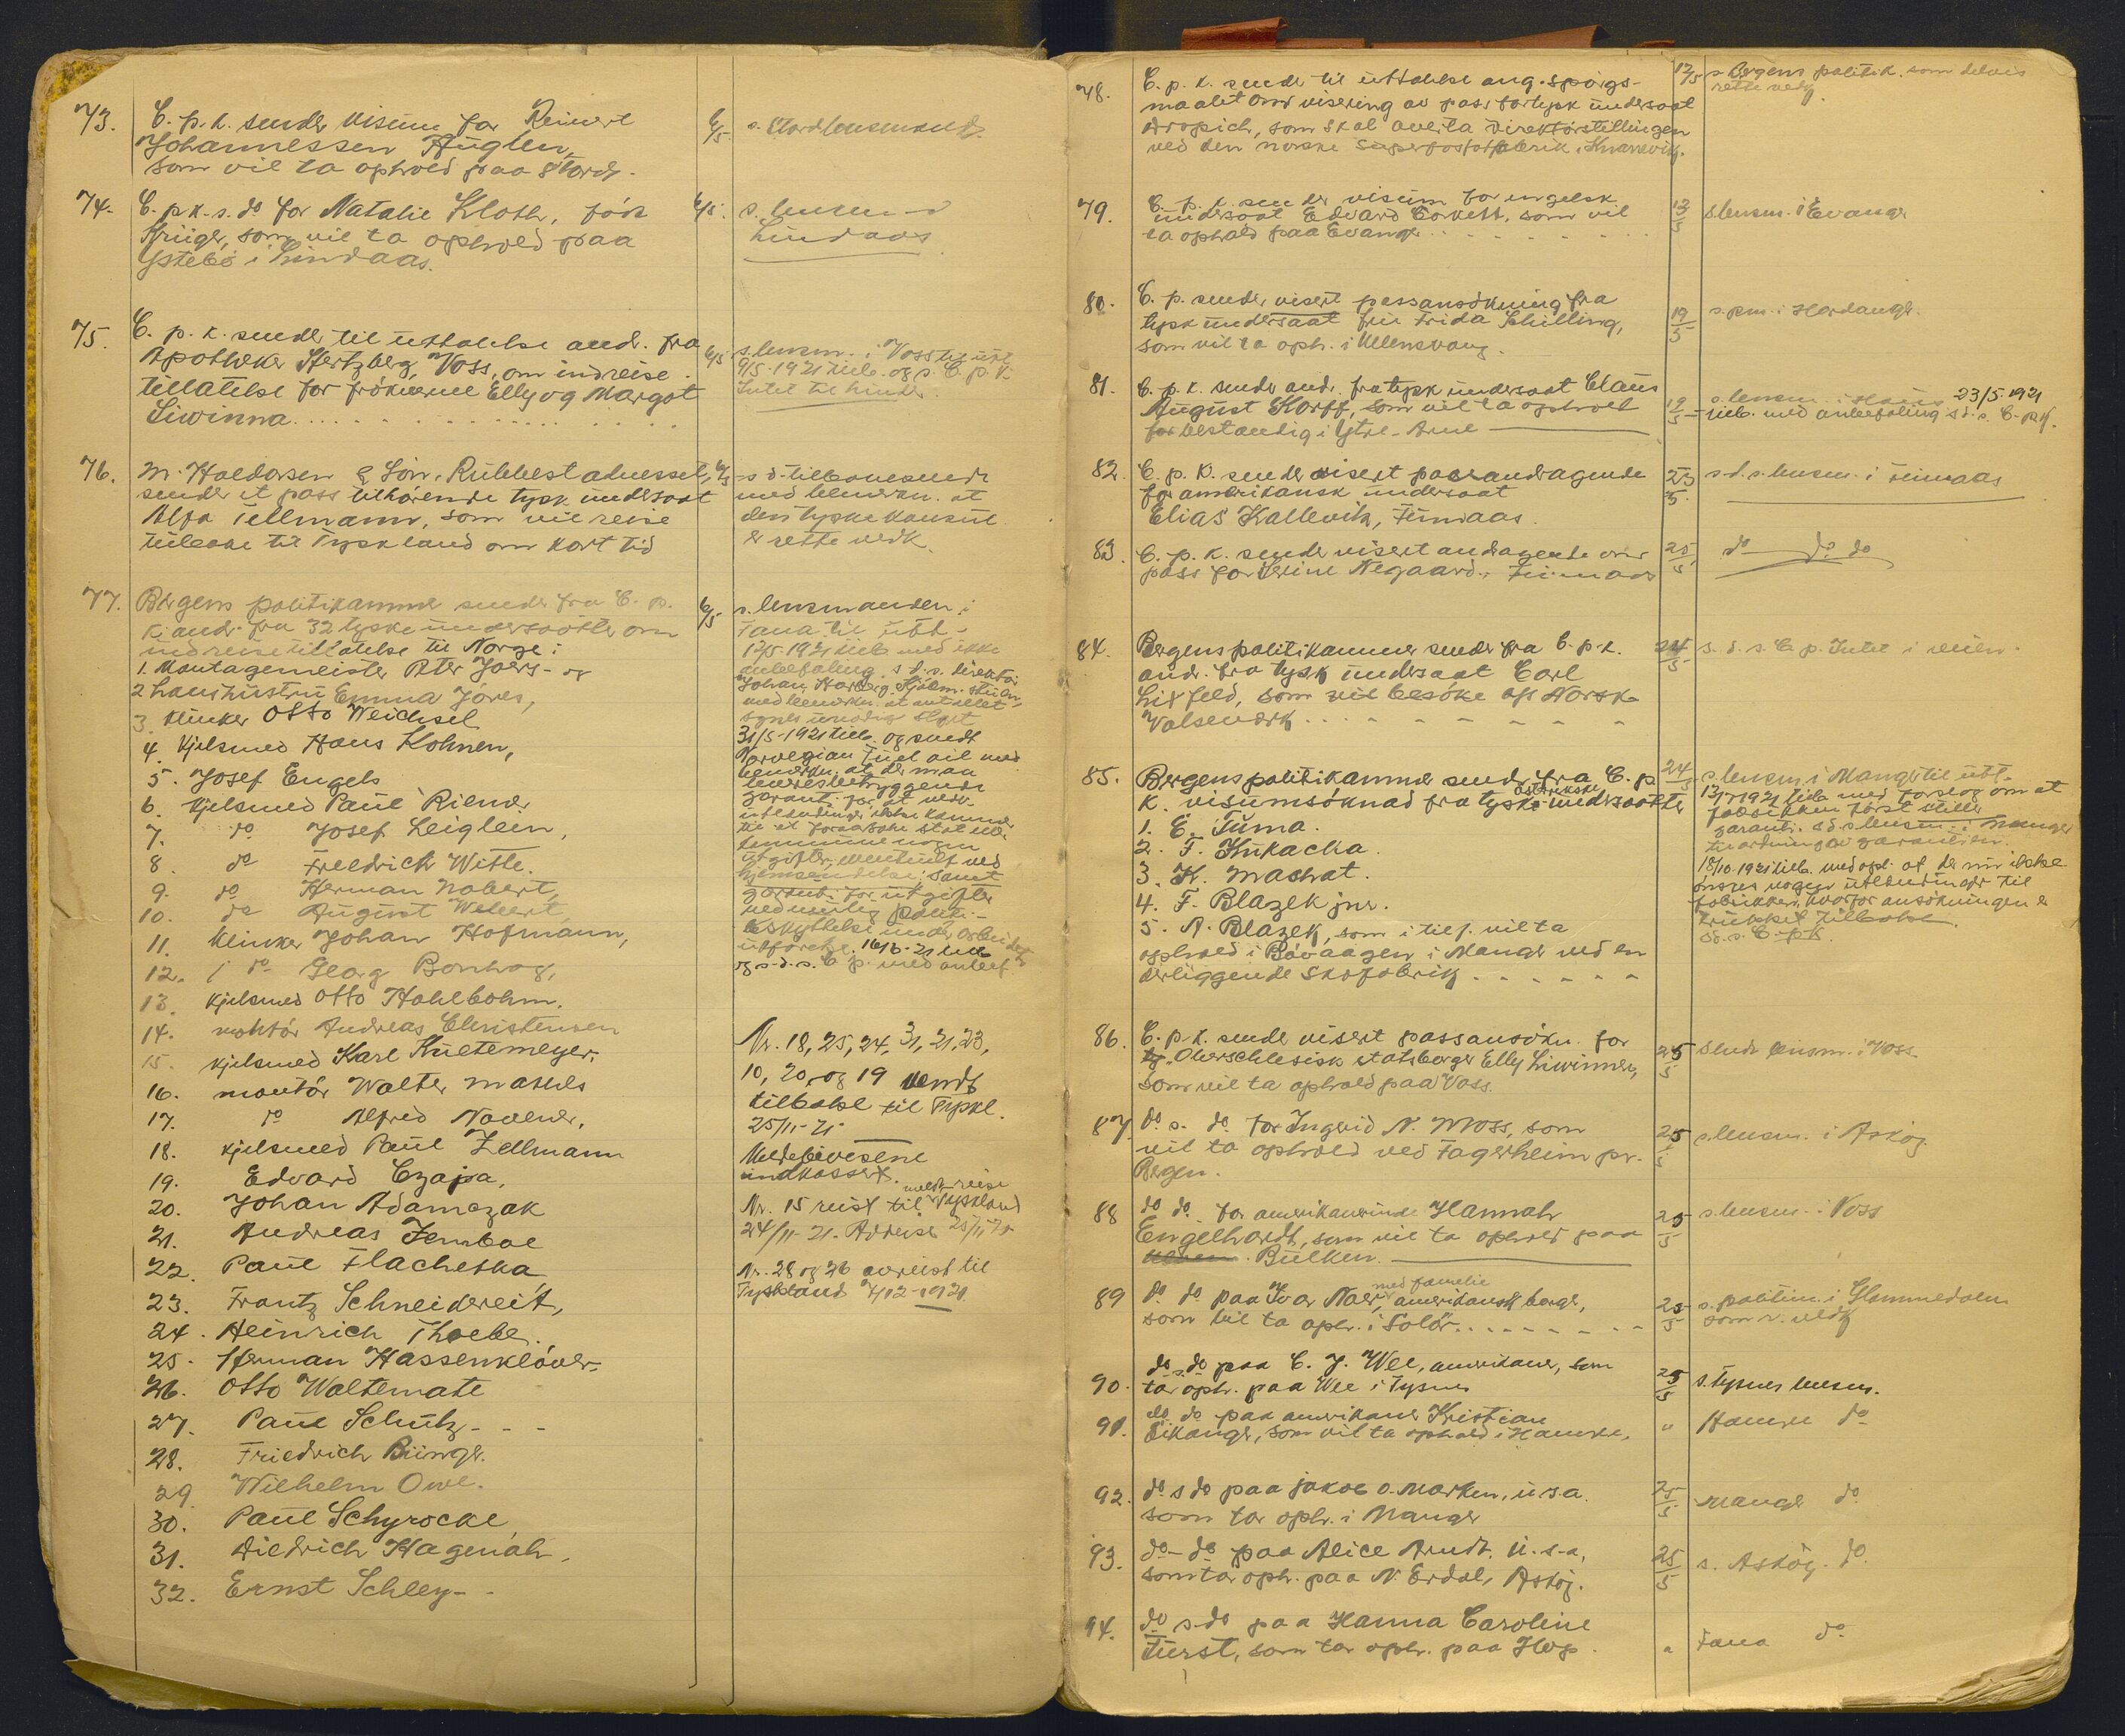 73. C. p. k. sender visum for Reinert
Johannessen Huglen,
som vil ta ophold paa Stord.
6/5. s. Stord lensmand
74. C. p. k. s. do for Natalie Kloth, født
Krüger, som vil ta ophold paa
Ystebø i Lindaas.
6/5. s. lensm
Lindaas
75. C. p. k. sender til uttalelse andr. fra
Apotheker Hertzberg, Voss, om indreise
tillatelse for frøknerne Elly og Margot
Liwinna
6/5 s. lensm. i Voss til utt.
9/5-1921 tilb. og s. C. p. k.
Intet til hinder.
76. M. Haldorsen & Søn, Rubbestadnesset,
sender et pass tilhørende tysk undersaat
Alfa Tellmann, som vil reise
tilbake til Tyskland om kort tid
s. d. tilbakesendt
med bemerkn. at
den tyske konsul
er rette vedk.
77. Bergens politikammer sender fra C. p.
k. andr. fra 32 tyske undersaatter om
indreisetillatelse til Norge:
1. Montagemeister Peter Joers - og
2 hans hustru Emma Jores,
3. klinker Otto Weichsel
4. Kjelsmed Hans Kohnen,
5. Josef Engels
6. Kjelsmed Paul Riener
7. do Josef Leiglein,
8. do Freedrich Witte.
9. do Herman Nobert,
10. do August Webert,
11. Klinker Johan Hofmann,
12. do Georg Bonhag,
13. Kjelsmed Otto Hohlbohm.
14. montør Andreas Christensen
15. Kjelsmed Karl Kuetemeyer,
16. montør Walter Mathes
17. do Alfred Navener,
18. kjelsmed Paul Zellmann
19. Edvard Czapa,
20. Johan Adamczak
21. Andreas Zembol
22. Paul Flacheska
23. Frantz Schneidereit,
24. Heinrich Thoebe.
25. Herman Hassenkløver.
26. Otto Waltemate
27. Paul Schütz - - -
28. Friedrich Bünger.
29. Wilhelm Owe.
30. Paul Schyrocke,
31. Diedrich Hagenah,
32. Ernst Schley - -
6/5 s. lensmanden i
Fana til utt.
12/5-1921 tilb. med ikke
anbefaling. s. d. s. direktør
Johan
med bemerkn. at antallet
synes unødig stort
31/5-1921 tilb. og sendt
Norwegian
bemerkn. at der maa
garanti for at
til at foraarsake stat eller
kommune nogen
utgifter, eventuelt ved
hjemsendelse samt
garanti for utgifter
ved politi-
beskyttelse under arbeidets
utførelse. 16/6-21 tilb
og s. d. s. C. p. med anbef.
Nr. 18, 25, 24, 31, 21, 23,
10, 20, og 19 vendt
tilbake til Tyskl.
25/11-21
Meldebevisene
indkassert.
Nr. 15 reist til Tyskland
24/11-21. Avreise 25/11-21
Nr. 28 og 26 avreist til
Tyskland 7/12-1921
78. C. p. k. sender til uttalelse ang. spørgs-
maalet om visering av pass for tysk undersaat
Dropich, som skal overta direktørstillingen
ved den norske Superfosfatfabrik i Knarrevik.
12/5 s. Bergens politik. som delvis
rette vedk.
79. C. p. k. sender visum for engelsk
undersaat Edvard Corkett, som vil
ta ophold paa Evanger
13/5 s lensm. i Evanger
80. C. p. sender visert passansøkning fra
tysk undersaat fru Frida Schilling,
som vil ta oph. i Ullensvang.
19/5 s. pm. i Hardanger.
81. C. p. k. sender andr. fra tysk undersaat Claus
August Korff, som vil ta ophold
for bestandig i Ytre-Arne
19/5 s. lensm. i Haus 23/5-1921
tilb. med anbefaling s. d. s. C. p. k.
82. C. p. k. sender visert pass andragende
for amerikansk undersaat
Elias Kallevik, Fiinaas.
23/5 s. d. s. lensm. i Fiinaas
83. C. p. k. sender visert andragende om
pass for Serine Negaard, Fiinaas
25/5 do do do
84. Bergens politikammer sender fra C. p. k.
andr. fra tysk undersaat Carl
Lixfeld, som vil besøke a/s Norsk
Valseverk
24/5 s. d. s. C p. Intet i veien.
85. Bergens politikammer sender fra C. p
k. visumsøknad fra tyske østrikske undersaatter
1. E. Tuma.
2. F. Kukacka.
3. K. Machat.
4. F. Blazek jnr.
5. A. Blazek, som i tilf. vil ta
ophold i Bøvaagen i Manger ved en
derliggende Skofabrik
24/5 s. lensm i Manger til utt.
13/7-1921 tilb med forslag om at
fabrikken først stiller
garanti. s d. s lensm. i Manger
til ordning av garantien.
18/10-1921 tilb. med opl. at der nu ikke
ønskes nogen utlændinger til
fabrikken, hvorfor ansøkningen er
trukket tilbake.
s. d. s. C. p k.
86. C. p. k. sender visert passansøkn. for
Oberschlesisk statsborger Elly Liwinna,
som vil ta ophold paa Voss.
25/5 Sendt lensm. i Voss
87. do s. do for Ingrid N. Moss, som
vil ta ophold ved Fagerheim pr.
Bergen.
25/5 s. lensm. i Askøy
88 do do for amerikanerinde Hannah
Engelhardt, som vil ta ophold paa
Bulken.
25/5 s. lensm. i Voss
89 do do paa Ivar Naer, med familie amerikansk borger,
som vil ta oph. i Solør
25/5 s. politim. i Glommedalen
som r. vedk
90. do s. do paa C. J. Wee, amerikaner, som
tar oph. paa Wee i Tysnes
25/5 s. Tysnes lensm.
91. do do paa amerikaner Kristian
Eikanger, som vil ta ophold i Hamre,
" Hamre do
92. do s do paa Jakob O. Marken, U.S.A.
som tar oph. i Manger
25/5 Manger do
93. do - do paa Alice Arndt. U.S.A,
som tar oph. paa N. Erdal, Askøy.
25/5 s. Askøy. do.
94. do s do paa Hanna Caroline
Fürst, som tar oph. paa Hop.
" Fana do